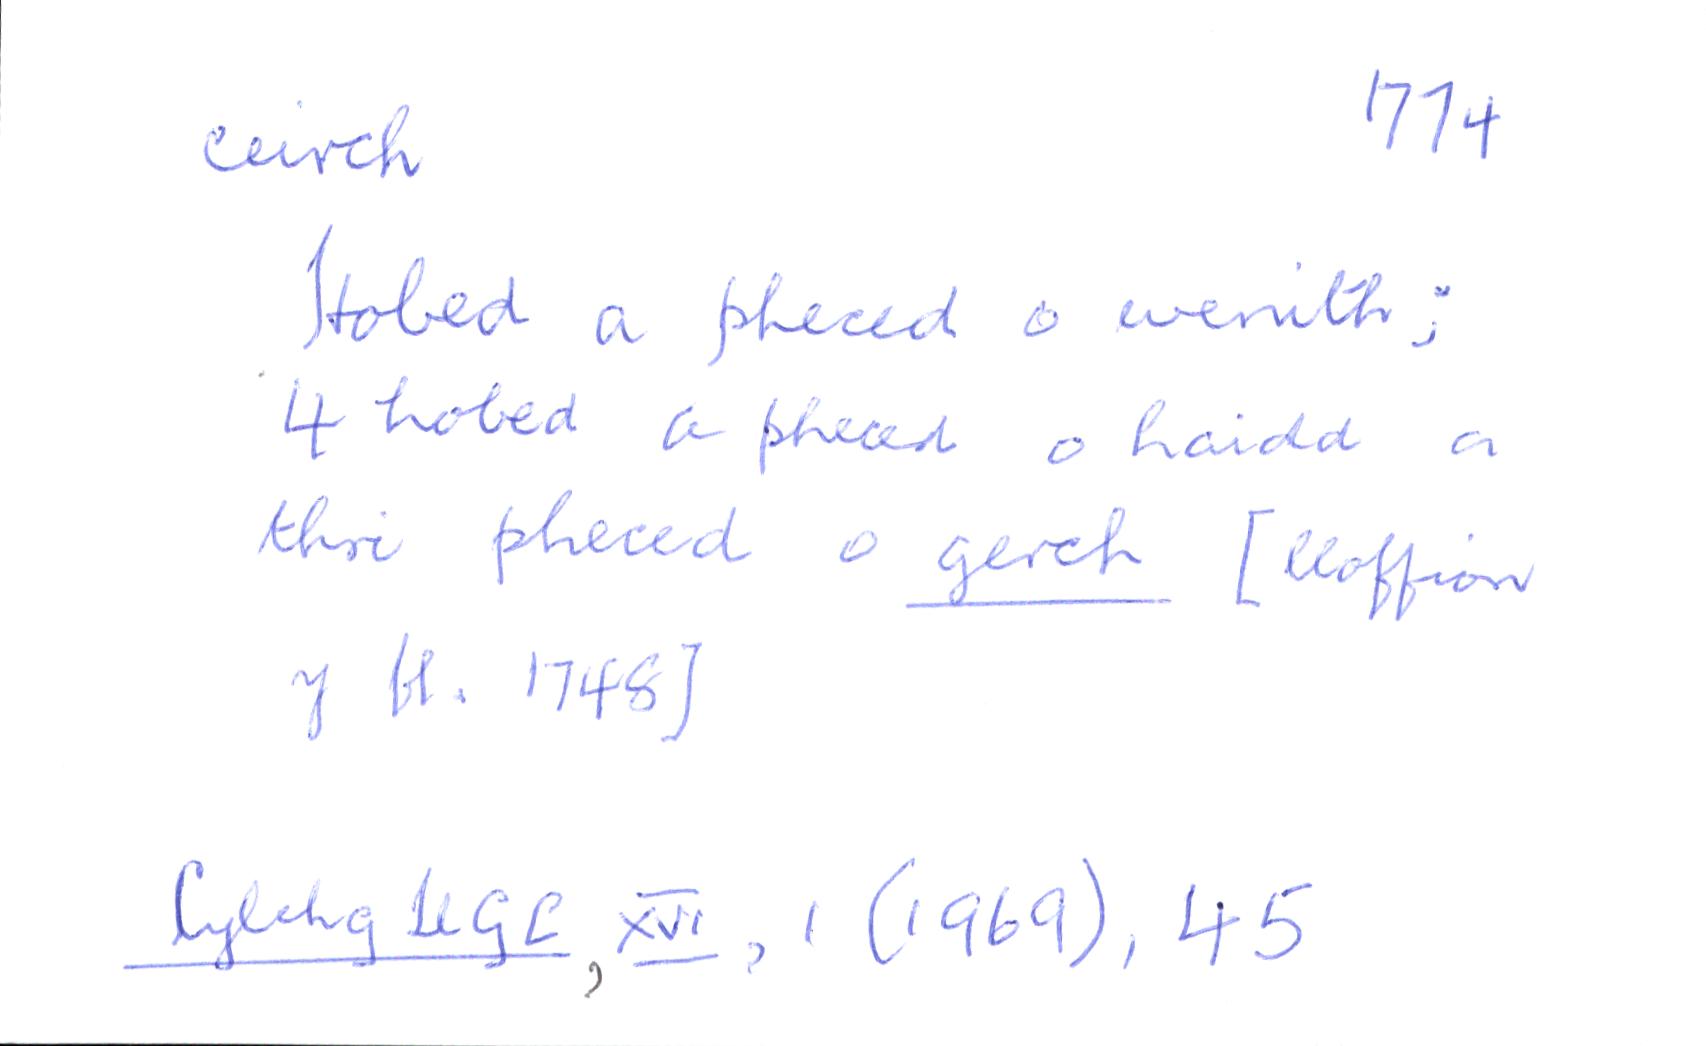 ceirch 1774
Hobed a pheced o wenith;
4 hobed a pheced o haidd a
thri pheced o gerch [lloffion
y fl. 1748]
Cylchg LlGC, XVI, 1 (1969), 45